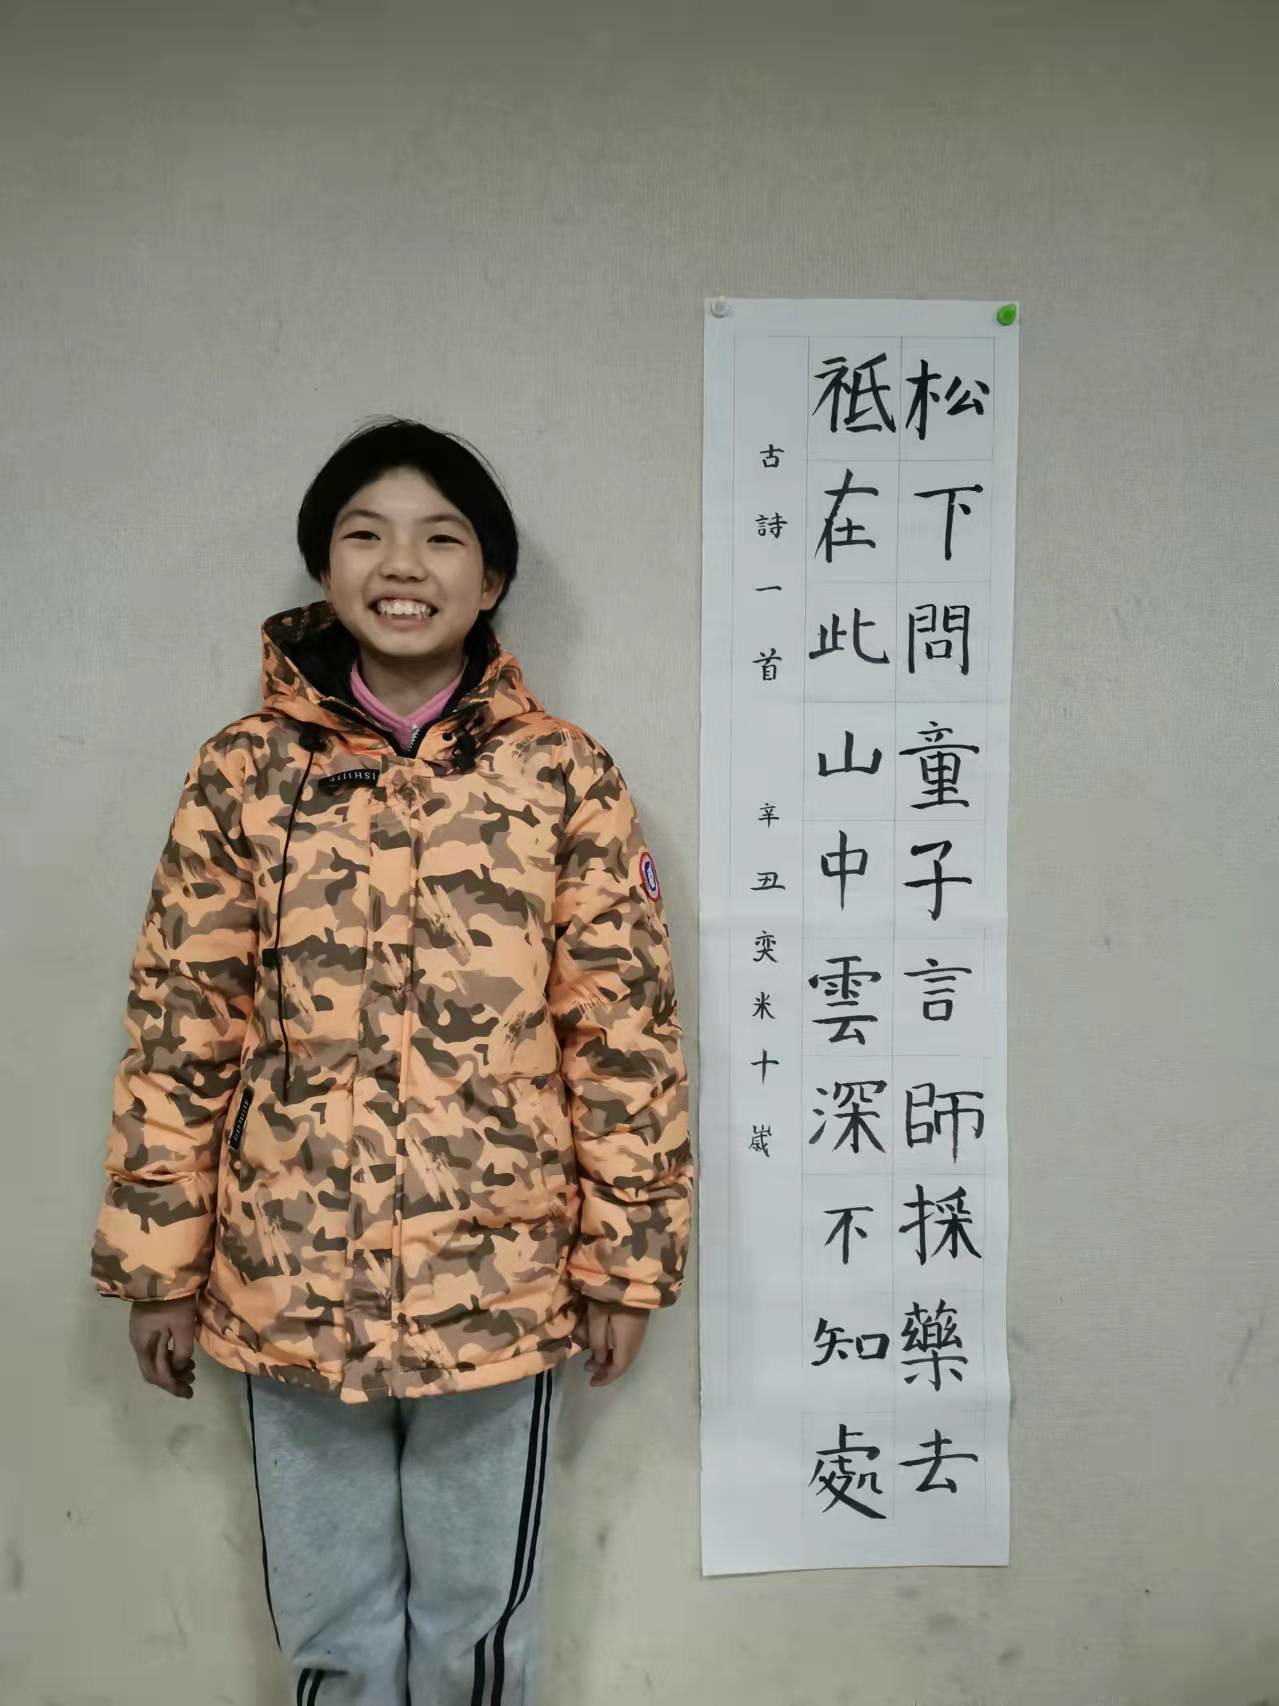 松下問童子言師採藥去
祗在此山中雲深不知處
古詩一首 辛丑奕米十嵗